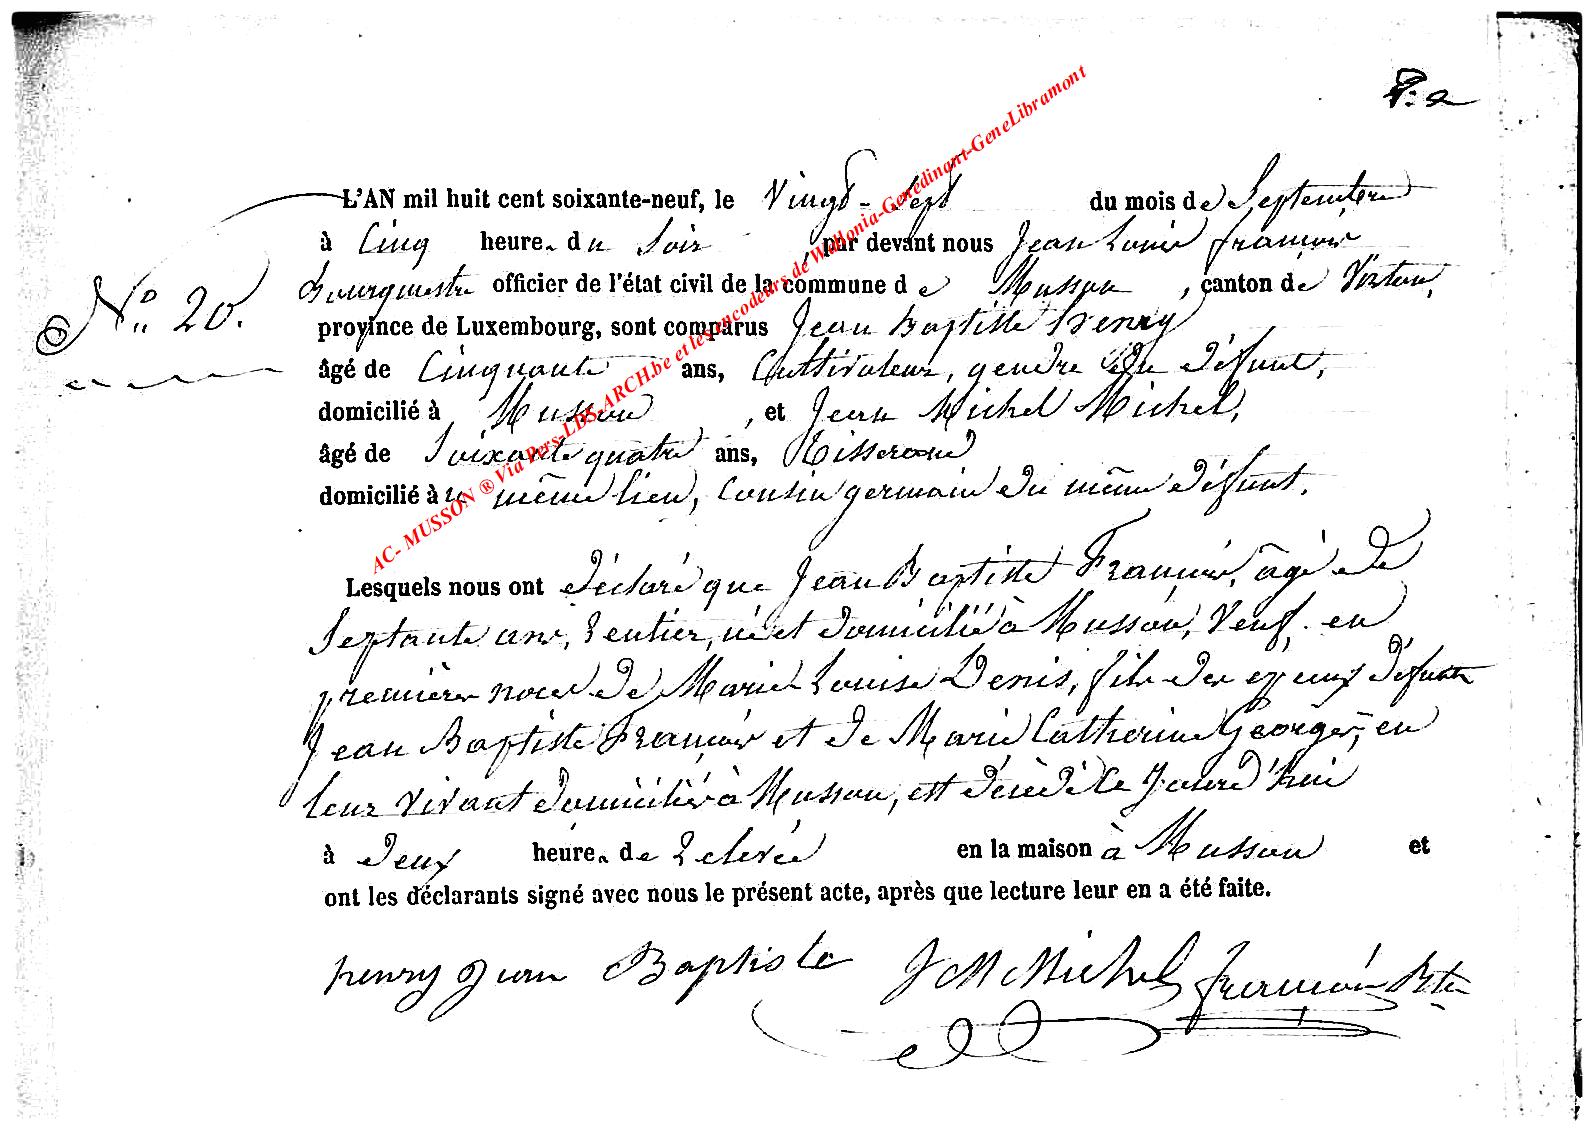 L'AN mil huit cent soixante-neuf, le Vingt-Sept du mois de Septembre
à Cinq heures du Soir, par devant nous Jean Louis François
Bourgmestre officier de l'état civil de la commune de Musson, canton de Virton,
N° 20.
province de Luxembourg, sont comparus Jean Baptiste Henry
âgé de Cinquante ans, Cultivateur, gendre du défunt,
domicilié à Musson, et Jean Michel Michel,
âgé de Soixante quatre ans, Tisserand
domicilié au même lieu, Cousin germain du même défunt.
Lesquels nous ont déclaré que Jean Baptiste François, âgé de
Septante ans, Rentier, né et domicilié à Musson, Veuf en
premières noces de Marie Louise Denis, fils des époux défunts
Jean Baptiste François et de Marie Catherine Georges, en
leur vivant domiciliés à Musson, est décédé Ce Jourd'hui
à deux heures de Relevée en la maison à Musson et
ont les déclarants signé avec nous le présent acte, après que lecture leur en a été faite.
henry Jean Baptiste J M Michel François Btre
AC- MUSSON ® Via Pers-LDS-ARCH.be et les encodeurs de Wallonia-Genedinant-GeneLibramont